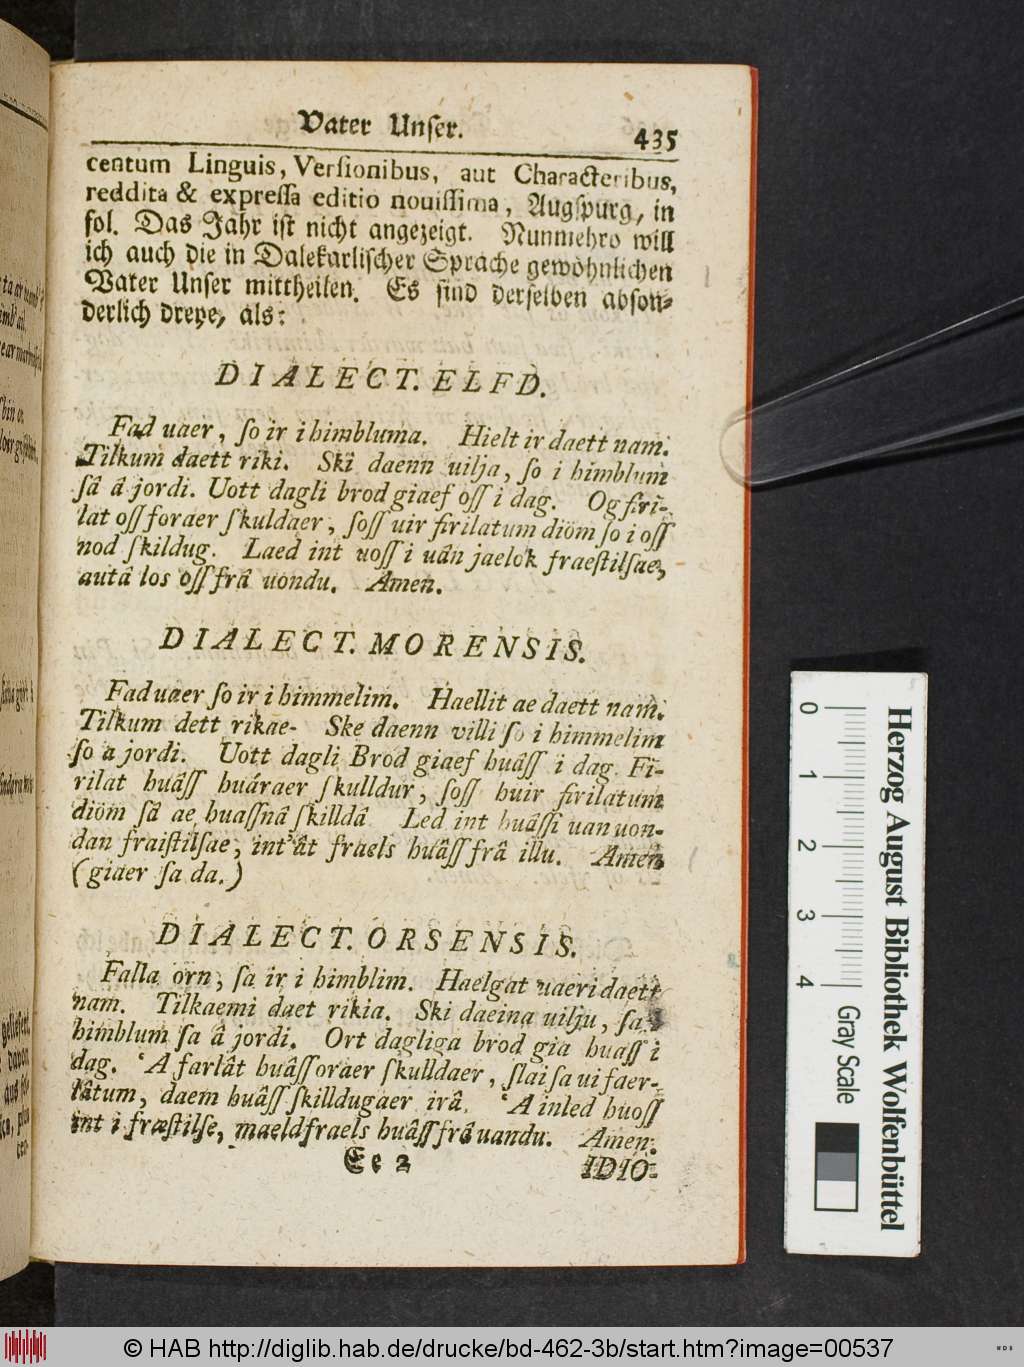 Vater Unſer.
435
centum Linguis, Verſionibus, aut Characteribus,
reddita & expreſſa editio nouiſſima, Augſpurg, in
fol. Das Jahr iſt nicht angezeigt. Nunmehro will
ich auch die in Dalekarliſcher Sprache gewöhnlichen
Vater Unſer mittheilen. Es ſind derſelben abſon-
derlich dreye, als:
DIALECT. ELFD.
Fad uaer, ſo ir i himbluma. Hielt ir daett nam.
Tilkum daett riki. Ski daenn uilja, ſo i himblum
ſâ â jordi. Uott dagli brod giaef oſſ i dag. Og firi-
lat oſſ foraer ſkuldaer, ſoſſ uir firilatum diöm ſo i oſſ
nod ſkildug. Laed int uoſſ i uân jaelok fraeſtilſae,
autâ los oſſ frâ uondu. Amen.
DIALECT. MORENSIS.
Fad uaer ſo ir i himmelim. Haellit ae daett nam.
Tilkum dett rikae- Ske daenn villi ſo i himmelim
ſo a jordi. Uott dagli Brod giaef huâſſ i dag. Fi-
rilat huâſſ huáraer ſkulldur, ſoſſ huir firilatum
diöm ſâ ae huaſſnâ ſkilldâ Led int huâſſi uan uon-
dan fraiſtilſae, int ât fraels huâſſ frâ illu. Amen
(giaer ſa da.)
DIALECT. ORSENSIS.
Falla orn, ſa ir i himblim. Haelgat uaeri daett
nam. Tilkaemi daet rikia. Ski daeina uilju, ſa
himblum ſa â jordi. Ort dagliga brod gia huaſſ i
dag. 'A farlât huâſſ oraer ſkulldaer, ſlai ſa ui faer-
lâtum, daem huâſſ ſkilldugaer irâ. 'A inled huoſſ
int i fræſtilſe, maeld fraels huâſſ frâ uandu. Amen.
Ee 2
IDIO-
Herzog August Bibliothek Wolfenbüttel
0 1 2 3 4
Gray Scale
© HAB http://diglib.hab.de/drucke/bd-462-3b/start.htm?image=00537